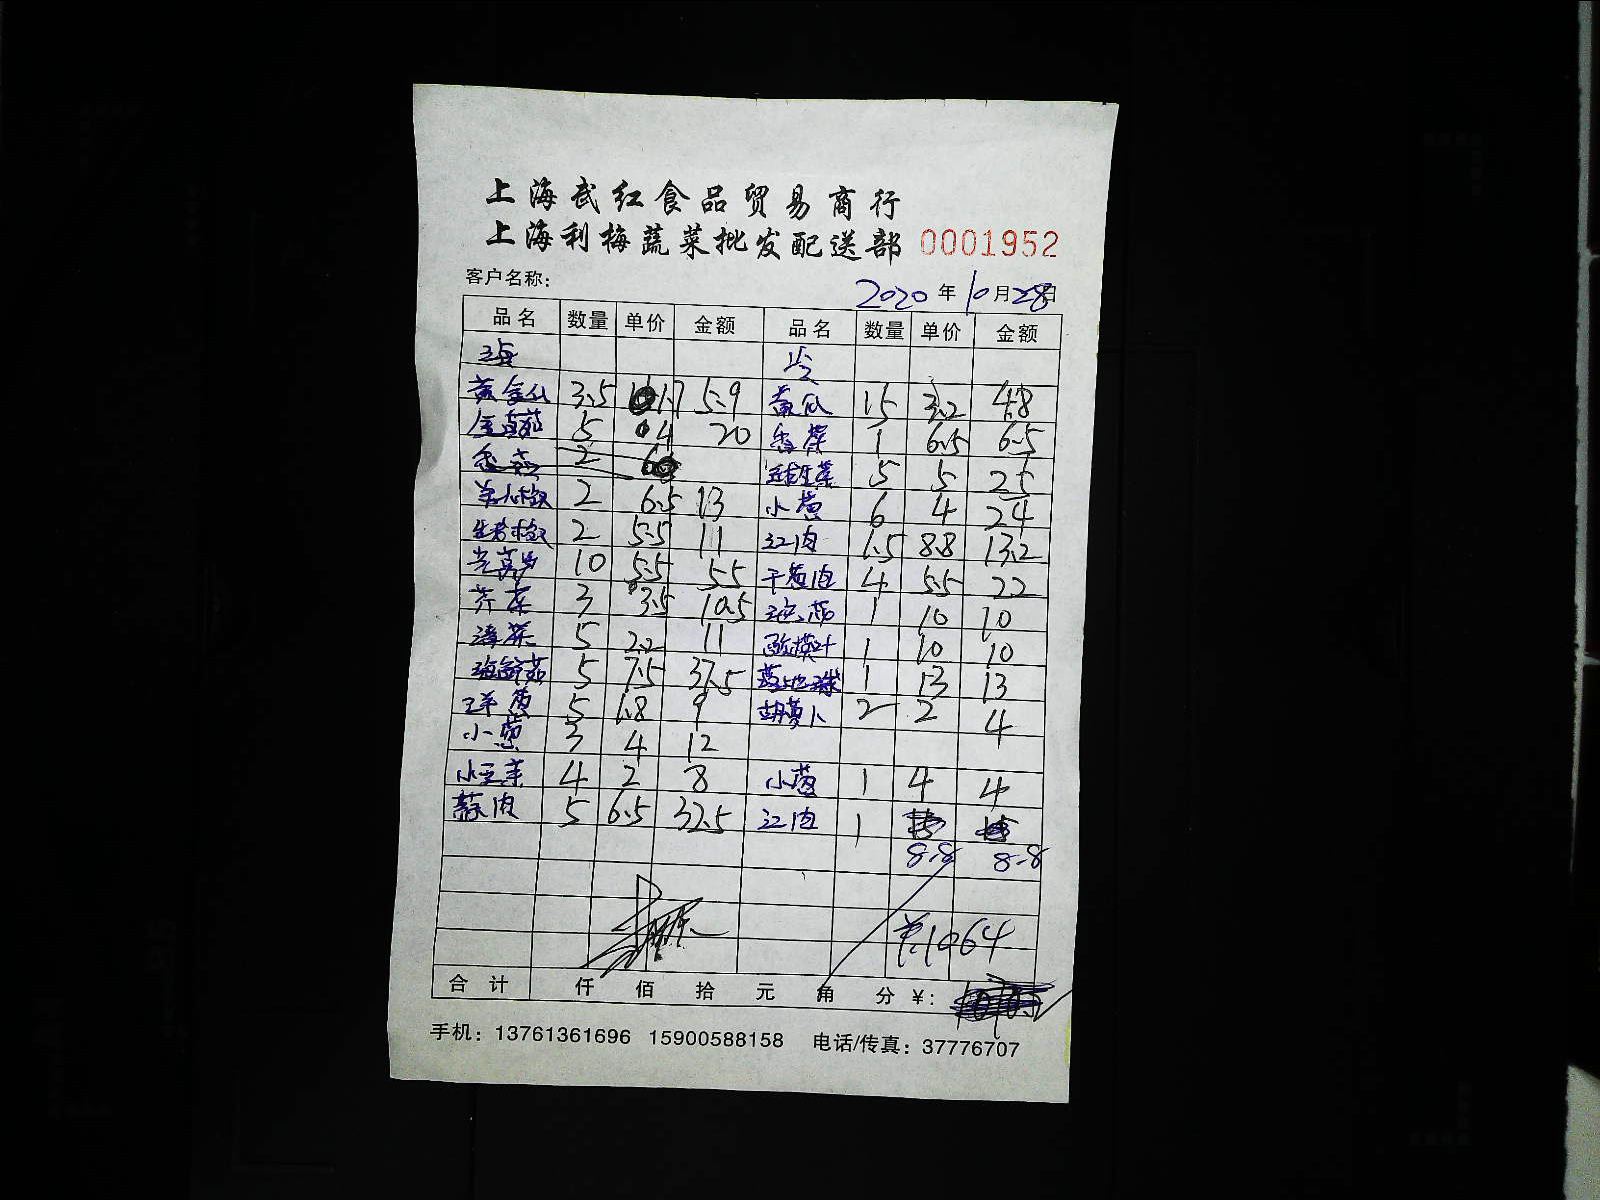 上海武红食品贸易商行
上海利梅蔬菜批发配送部 0001952
客户名称: 2020 年 10 月 28 日
品名 数量 单价 金额 品名 数量 单价 金额
黄金瓜 3.5 1.7 5.9 黄瓜 15 3.2 48
金针菇 5 4 20 香菜 1 6.5 6.5
2 5 5 25
羊角椒 2 6.5 13 小葱 6 4 24
2 5.5 11 江肉 1.5 8.8 13.2
10 5.5 55 干葱肉 4 5.5 22
芹菜 3 3.5 10.5 1 10 10
5 2.2 11 酸模叶 1 10 10
海鲜菇 5 7.5 37.5 1 13 13
洋葱 5 1.8 9 胡萝卜 2 2 4
小葱 3 4 12
小豆芽 4 2 8 小葱 1 4 4
蒜肉 5 6.5 32.5 江肉 1
8.8 8.8
¥:1064
合计 仟 佰 拾 元 角 分 ¥:
手机: 13761361696 15900588158 电话/传真: 37776707